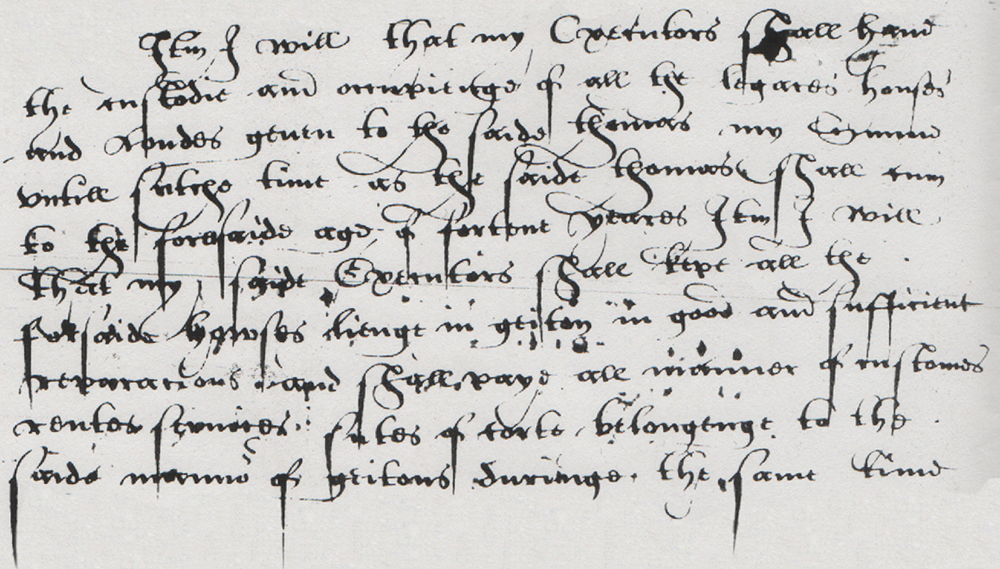 Itm I will that my Executors shall haue
the custodie and occupieinge of all the legaces houses
and Londes geuen to the saide thomas my Sonne
vntill sutche time as the saide thomas shall cum
to the foresaide age of fortene yeares Itm I will
that my saide Executors shall kepe all the
forsaide howses lienge in geiton in good and sufficient
reparacions and shall paye all manner of customes
rentes seruices sutes of corte belonginge to the
saide mannor of geitons duringe the same time